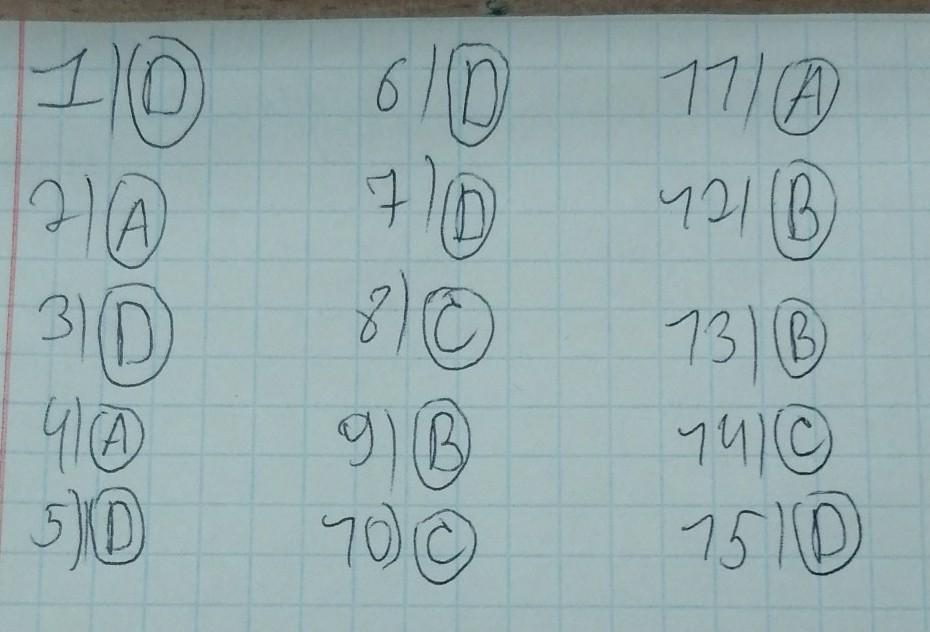 1) D
2) A
3) D
4) A
5) D
6) D
7) D
8) C
9) B
10) C
11) A
12) B
13) B
14) C
15) D